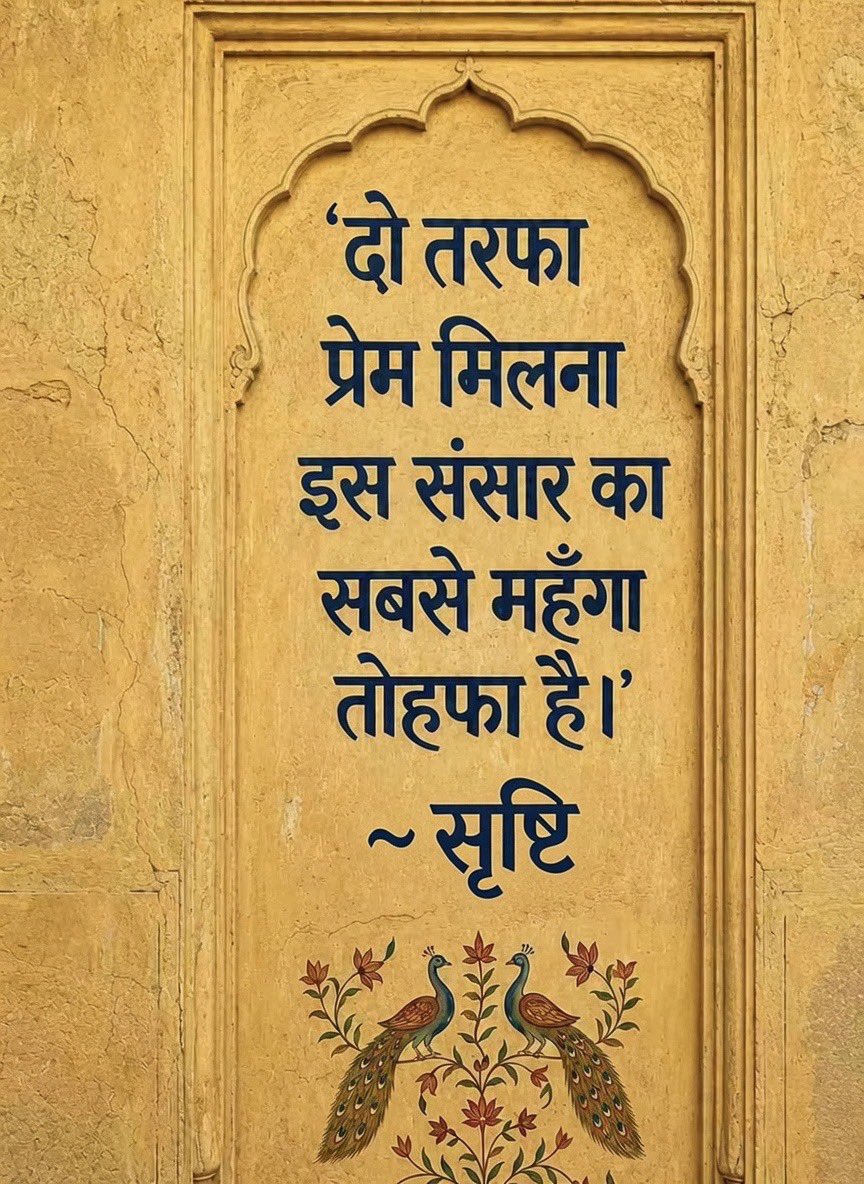 ‘दो तरफा
प्रेम मिलना
इस संसार का
सबसे महँगा
तोहफा है।’
~ सृष्टि